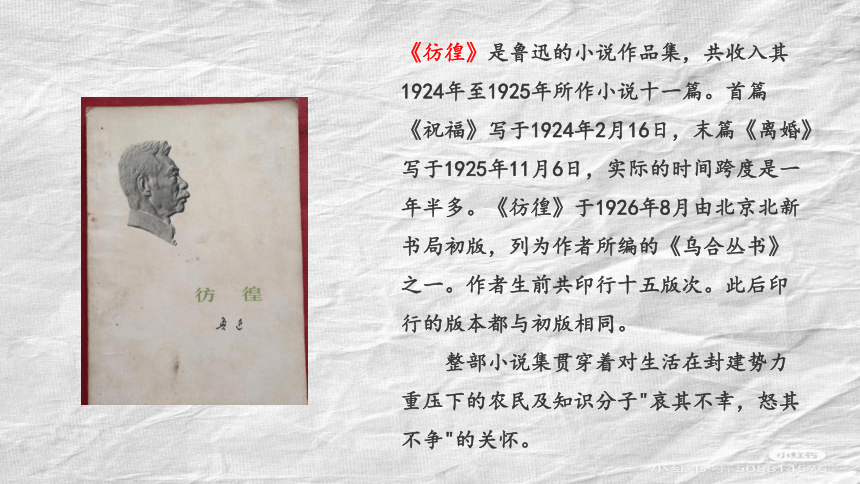 《彷徨》是鲁迅的小说作品集，共收入其
1924年至1925年所作小说十一篇。首篇
《祝福》写于1924年2月16日，末篇《离婚》
写于1925年11月6日，实际的时间跨度是一
年半多。《彷徨》于1926年8月由北京北新
书局初版，列为作者所编的《乌合丛书》
之一。作者生前共印行十五版次。此后印
行的版本都与初版相同。
整部小说集贯穿着对生活在封建势力
重压下的农民及知识分子"哀其不幸，怒其
不争"的关怀。
彷徨
鲁迅
小红书